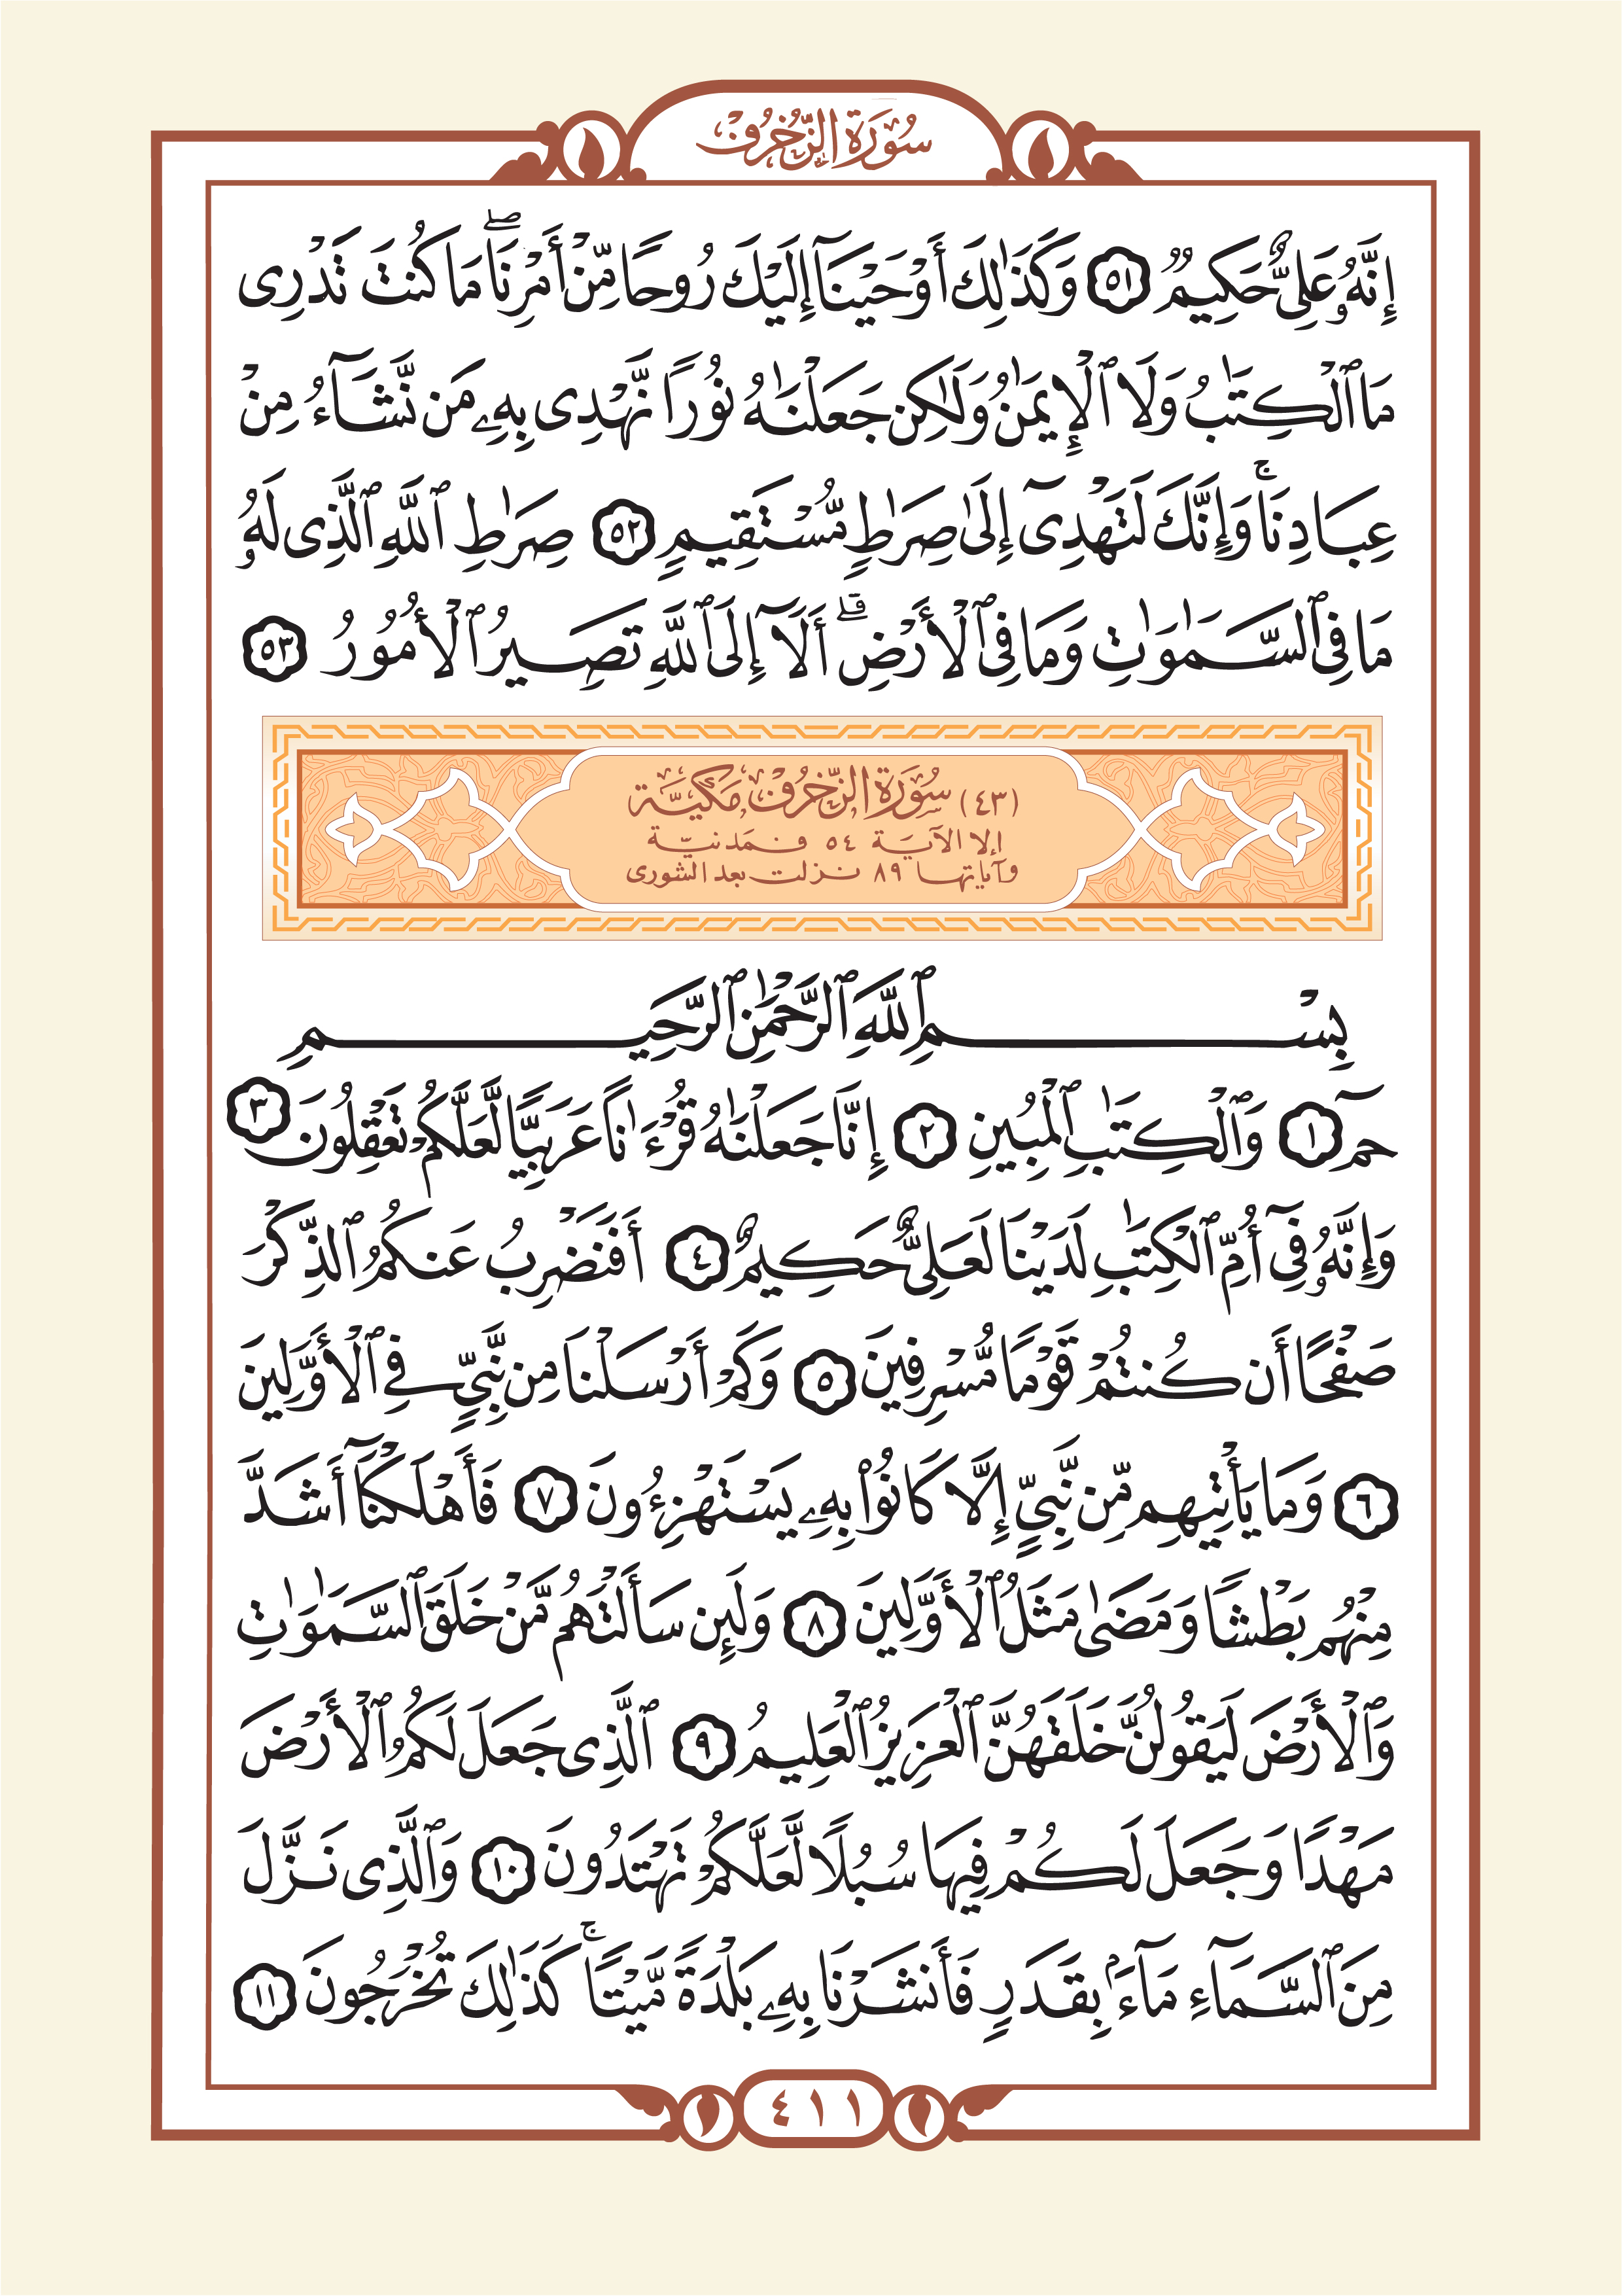 سُورَةُ الزُّخْرُفِ
إِنَّهُۥ عَلِىٌّ حَكِيمٌ ٥١ وَكَذَٰلِكَ أَوْحَيْنَآ إِلَيْكَ رُوحًا مِّنْ أَمْرِنَا ۖ مَا كُنتَ تَدْرِى
مَا ٱلْكِتَٰبُ وَلَا ٱلْإِيمَٰنُ وَلَٰكِن جَعَلْنَٰهُ نُورًا نَّهْدِى بِهِۦ مَن نَّشَآءُ مِنْ
عِبَادِنَا ۚ وَإِنَّكَ لَتَهْدِىٓ إِلَىٰ صِرَٰطٍ مُّسْتَقِيمٍ ٥٢ صِرَٰطِ ٱللَّهِ ٱلَّذِى لَهُۥ
مَا فِى ٱلسَّمَٰوَٰتِ وَمَا فِى ٱلْأَرْضِ ۗ أَلَآ إِلَى ٱللَّهِ تَصِيرُ ٱلْأُمُورُ ٥٣
(٤٣) سُورَةُ الزُّخْرُفِ مَكِّيَّة
إلا الآية ٥٤ فمدنيّة
وآياتها ٨٩ نزلت بعد الشورى
بِسْمِ ٱللَّهِ ٱلرَّحْمَٰنِ ٱلرَّحِيمِ
حمٓ ١ وَٱلْكِتَٰبِ ٱلْمُبِينِ ٢ إِنَّا جَعَلْنَٰهُ قُرْءَٰنًا عَرَبِيًّا لَّعَلَّكُمْ تَعْقِلُونَ ٣
وَإِنَّهُۥ فِىٓ أُمِّ ٱلْكِتَٰبِ لَدَيْنَا لَعَلِىٌّ حَكِيمٌ ٤ أَفَنَضْرِبُ عَنكُمُ ٱلذِّكْرَ
صَفْحًا أَن كُنتُمْ قَوْمًا مُّسْرِفِينَ ٥ وَكَمْ أَرْسَلْنَا مِن نَّبِىٍّ فِى ٱلْأَوَّلِينَ
٦ وَمَا يَأْتِيهِم مِّن نَّبِىٍّ إِلَّا كَانُوا۟ بِهِۦ يَسْتَهْزِءُونَ ٧ فَأَهْلَكْنَآ أَشَدَّ
مِنْهُم بَطْشًا وَمَضَىٰ مَثَلُ ٱلْأَوَّلِينَ ٨ وَلَئِن سَأَلْتَهُم مَّنْ خَلَقَ ٱلسَّمَٰوَٰتِ
وَٱلْأَرْضَ لَيَقُولُنَّ خَلَقَهُنَّ ٱلْعَزِيزُ ٱلْعَلِيمُ ٩ ٱلَّذِى جَعَلَ لَكُمُ ٱلْأَرْضَ
مَهْدًا وَجَعَلَ لَكُمْ فِيهَا سُبُلًا لَّعَلَّكُمْ تَهْتَدُونَ ١٠ وَٱلَّذِى نَزَّلَ
مِنَ ٱلسَّمَآءِ مَآءًۢ بِقَدَرٍ فَأَنشَرْنَا بِهِۦ بَلْدَةً مَّيْتًا ۚ كَذَٰلِكَ تُخْرَجُونَ ١١
٤١١